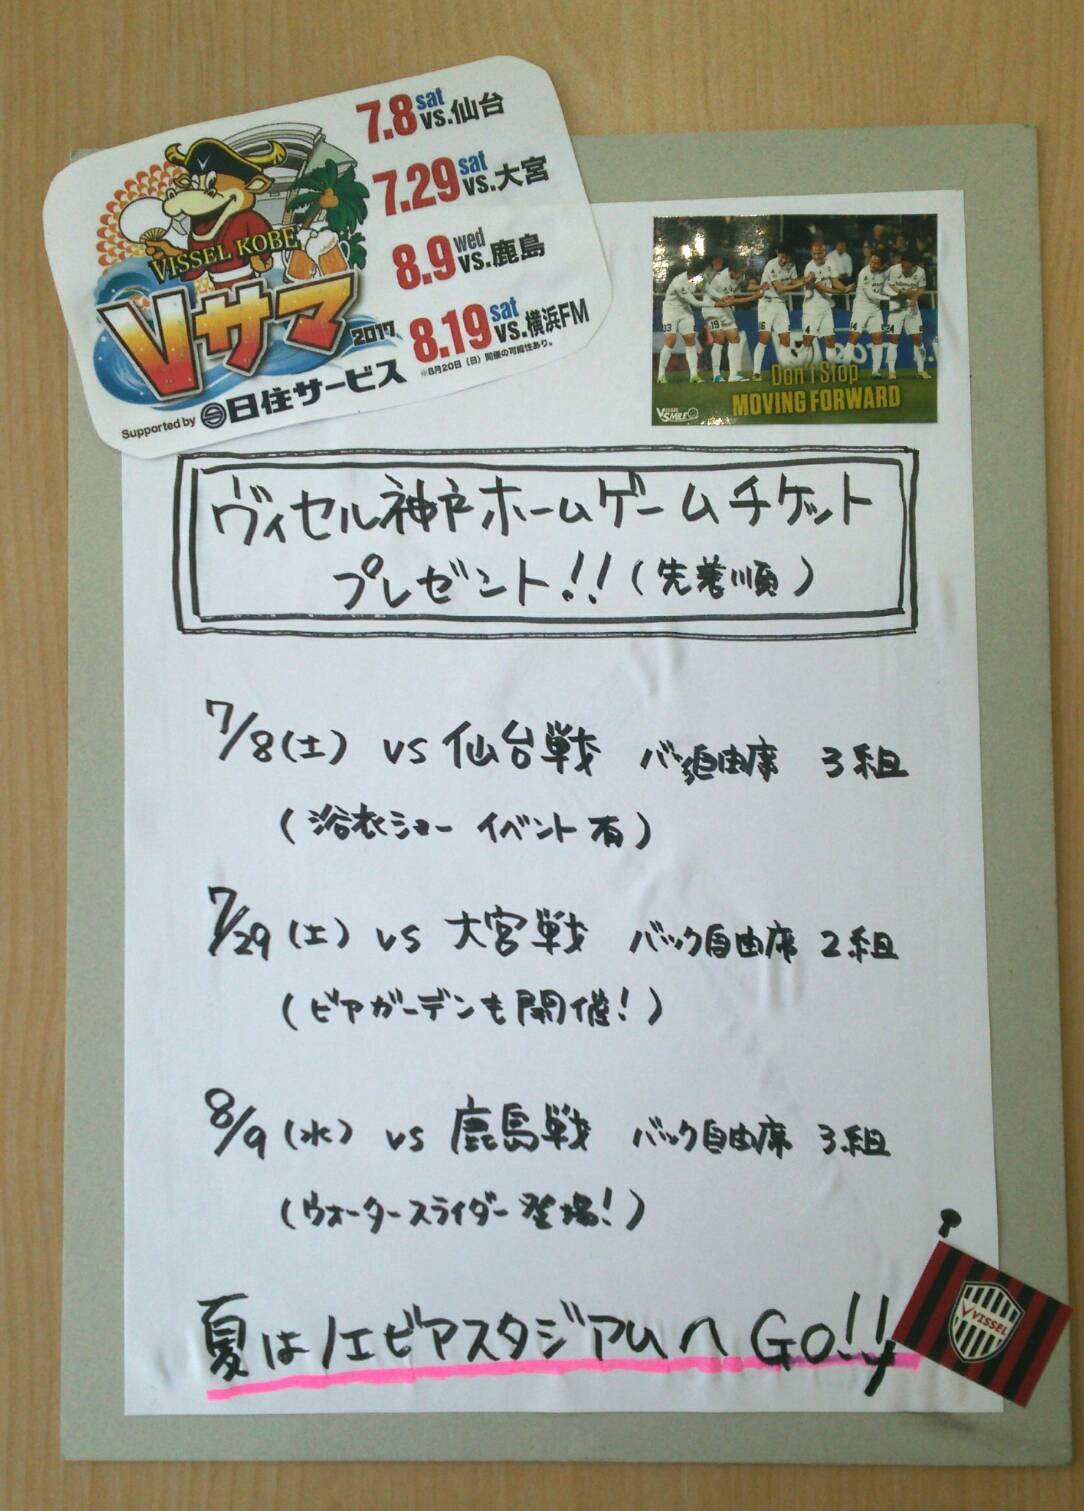 7.8 sat vs.仙台
7.29 sat vs.大宮
8.9 wed vs.鹿島
8.19 sat vs.横浜FM
※8月20日(日)開催の可能性あり。
VISSEL KOBE
Vサマ 2017
Supported by 日住サービス
Don't Stop
MOVING FORWARD
VISSEL SMILE
ヴィセル神戸ホームゲームチケット
プレゼント!!(先着順)
7/8(土) vs 仙台戦 バック自由席 3組
(浴衣ショー イベント有)
7/29(土) vs 大宮戦 バック自由席 2組
(ビアガーデンも開催!)
8/9(水) vs 鹿島戦 バック自由席 3組
(ウォータースライダー登場!)
夏はノエビアスタジアムへGO!!
VISSEL